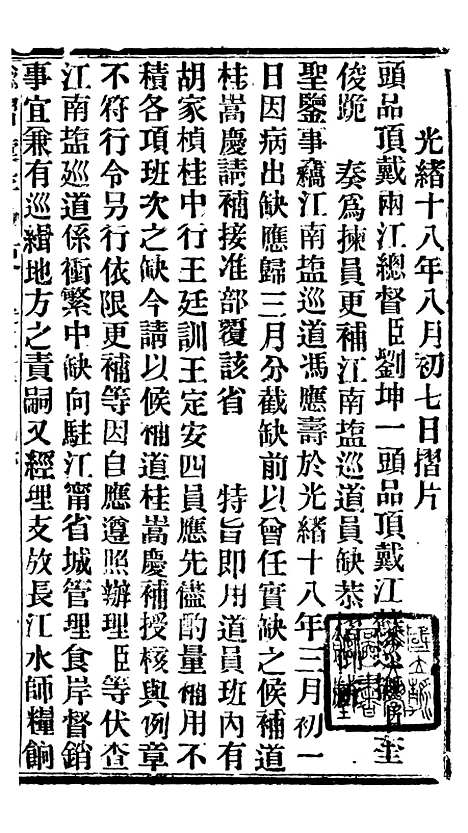 光緒十八年八月初七日摺片
頭品頂戴兩江總督臣劉坤一頭品頂戴江 奎
俊跪 奏爲揀員更補江南鹽巡道員缺恭摺仰祈
聖鑒事竊江南鹽巡道馮應壽於光緒十八年三月初一
日因病出缺應歸三月分截缺前以曾任實缺之候補道
桂嵩慶請補接准部覆該省 特旨即用道員班內有
胡家楨桂中行王廷訓王定安四員應先儘酌量補用不
積各項班次之缺今請以候補道桂嵩慶補授核與例章
不符行令另行依限更補等因自應遵照辦理臣等伏查
江南鹽巡道係衝繁中缺向駐江甯省城管理食岸督銷
事宜兼有巡緝地方之責嗣又經理支放長江水師糧餉